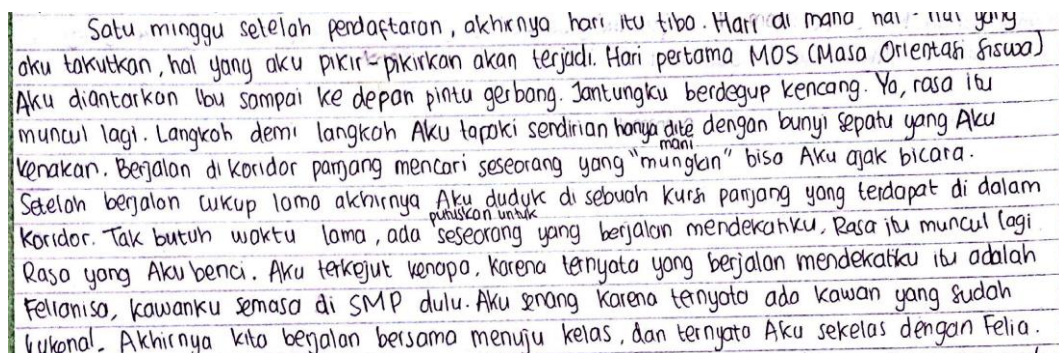 Satu minggu setelah pendaftaran, akhirnya hari itu tiba. Hari di mana hal-hal yang
aku takutkan, hal yang aku pikir-pikirkan akan terjadi. Hari pertama MOS (Masa Orientasi Siswa)
Aku diantarkan Ibu sampai ke depan pintu gerbang. Jantungku berdegup kencang. Ya, rasa itu
muncul lagi. Langkah demi langkah Aku tapaki sendirian hanya dite dengan bunyi sepatu yang Aku
mani
kenakan. Berjalan di koridor panjang mencari seseorang yang "mungkin" bisa Aku ajak bicara.
Setelah berjalan cukup lama akhirnya Aku duduk di sebuah kursi panjang yang terdapat di dalam
putuskan untuk
Koridor. Tak butuh waktu lama, ada seseorang yang berjalan mendekatiku. Rasa itu muncul lagi
Rasa yang Aku benci. Aku terkejut kenapa, karena ternyata yang berjalan mendekatiku itu adalah
Felianisa, kawanku semasa di SMP dulu. Aku senang karena ternyata ada kawan yang sudah
kukenal. Akhirnya kita berjalan bersama menuju kelas, dan ternyata Aku sekelas dengan Felia.